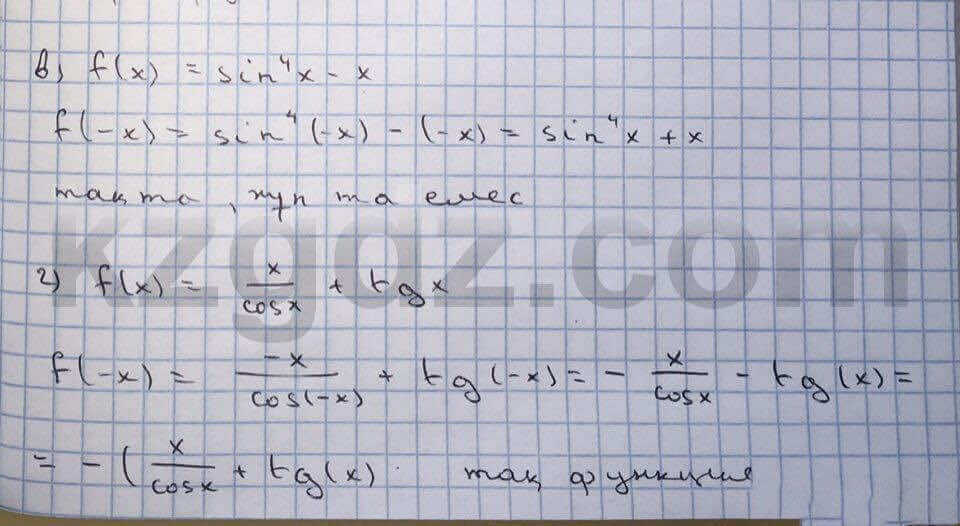 в) f(x) = sin⁴x - x
f(-x) = sin⁴(-x) - (-x) = sin⁴x + x
тақ та, жұп та емес
kzgdz.com
г) f(x) = x/cosx + tgx
f(-x) = -x/cos(-x) + tg(-x) = - x/cosx - tg(x) =
= - (x/cosx + tg(x) тақ функция